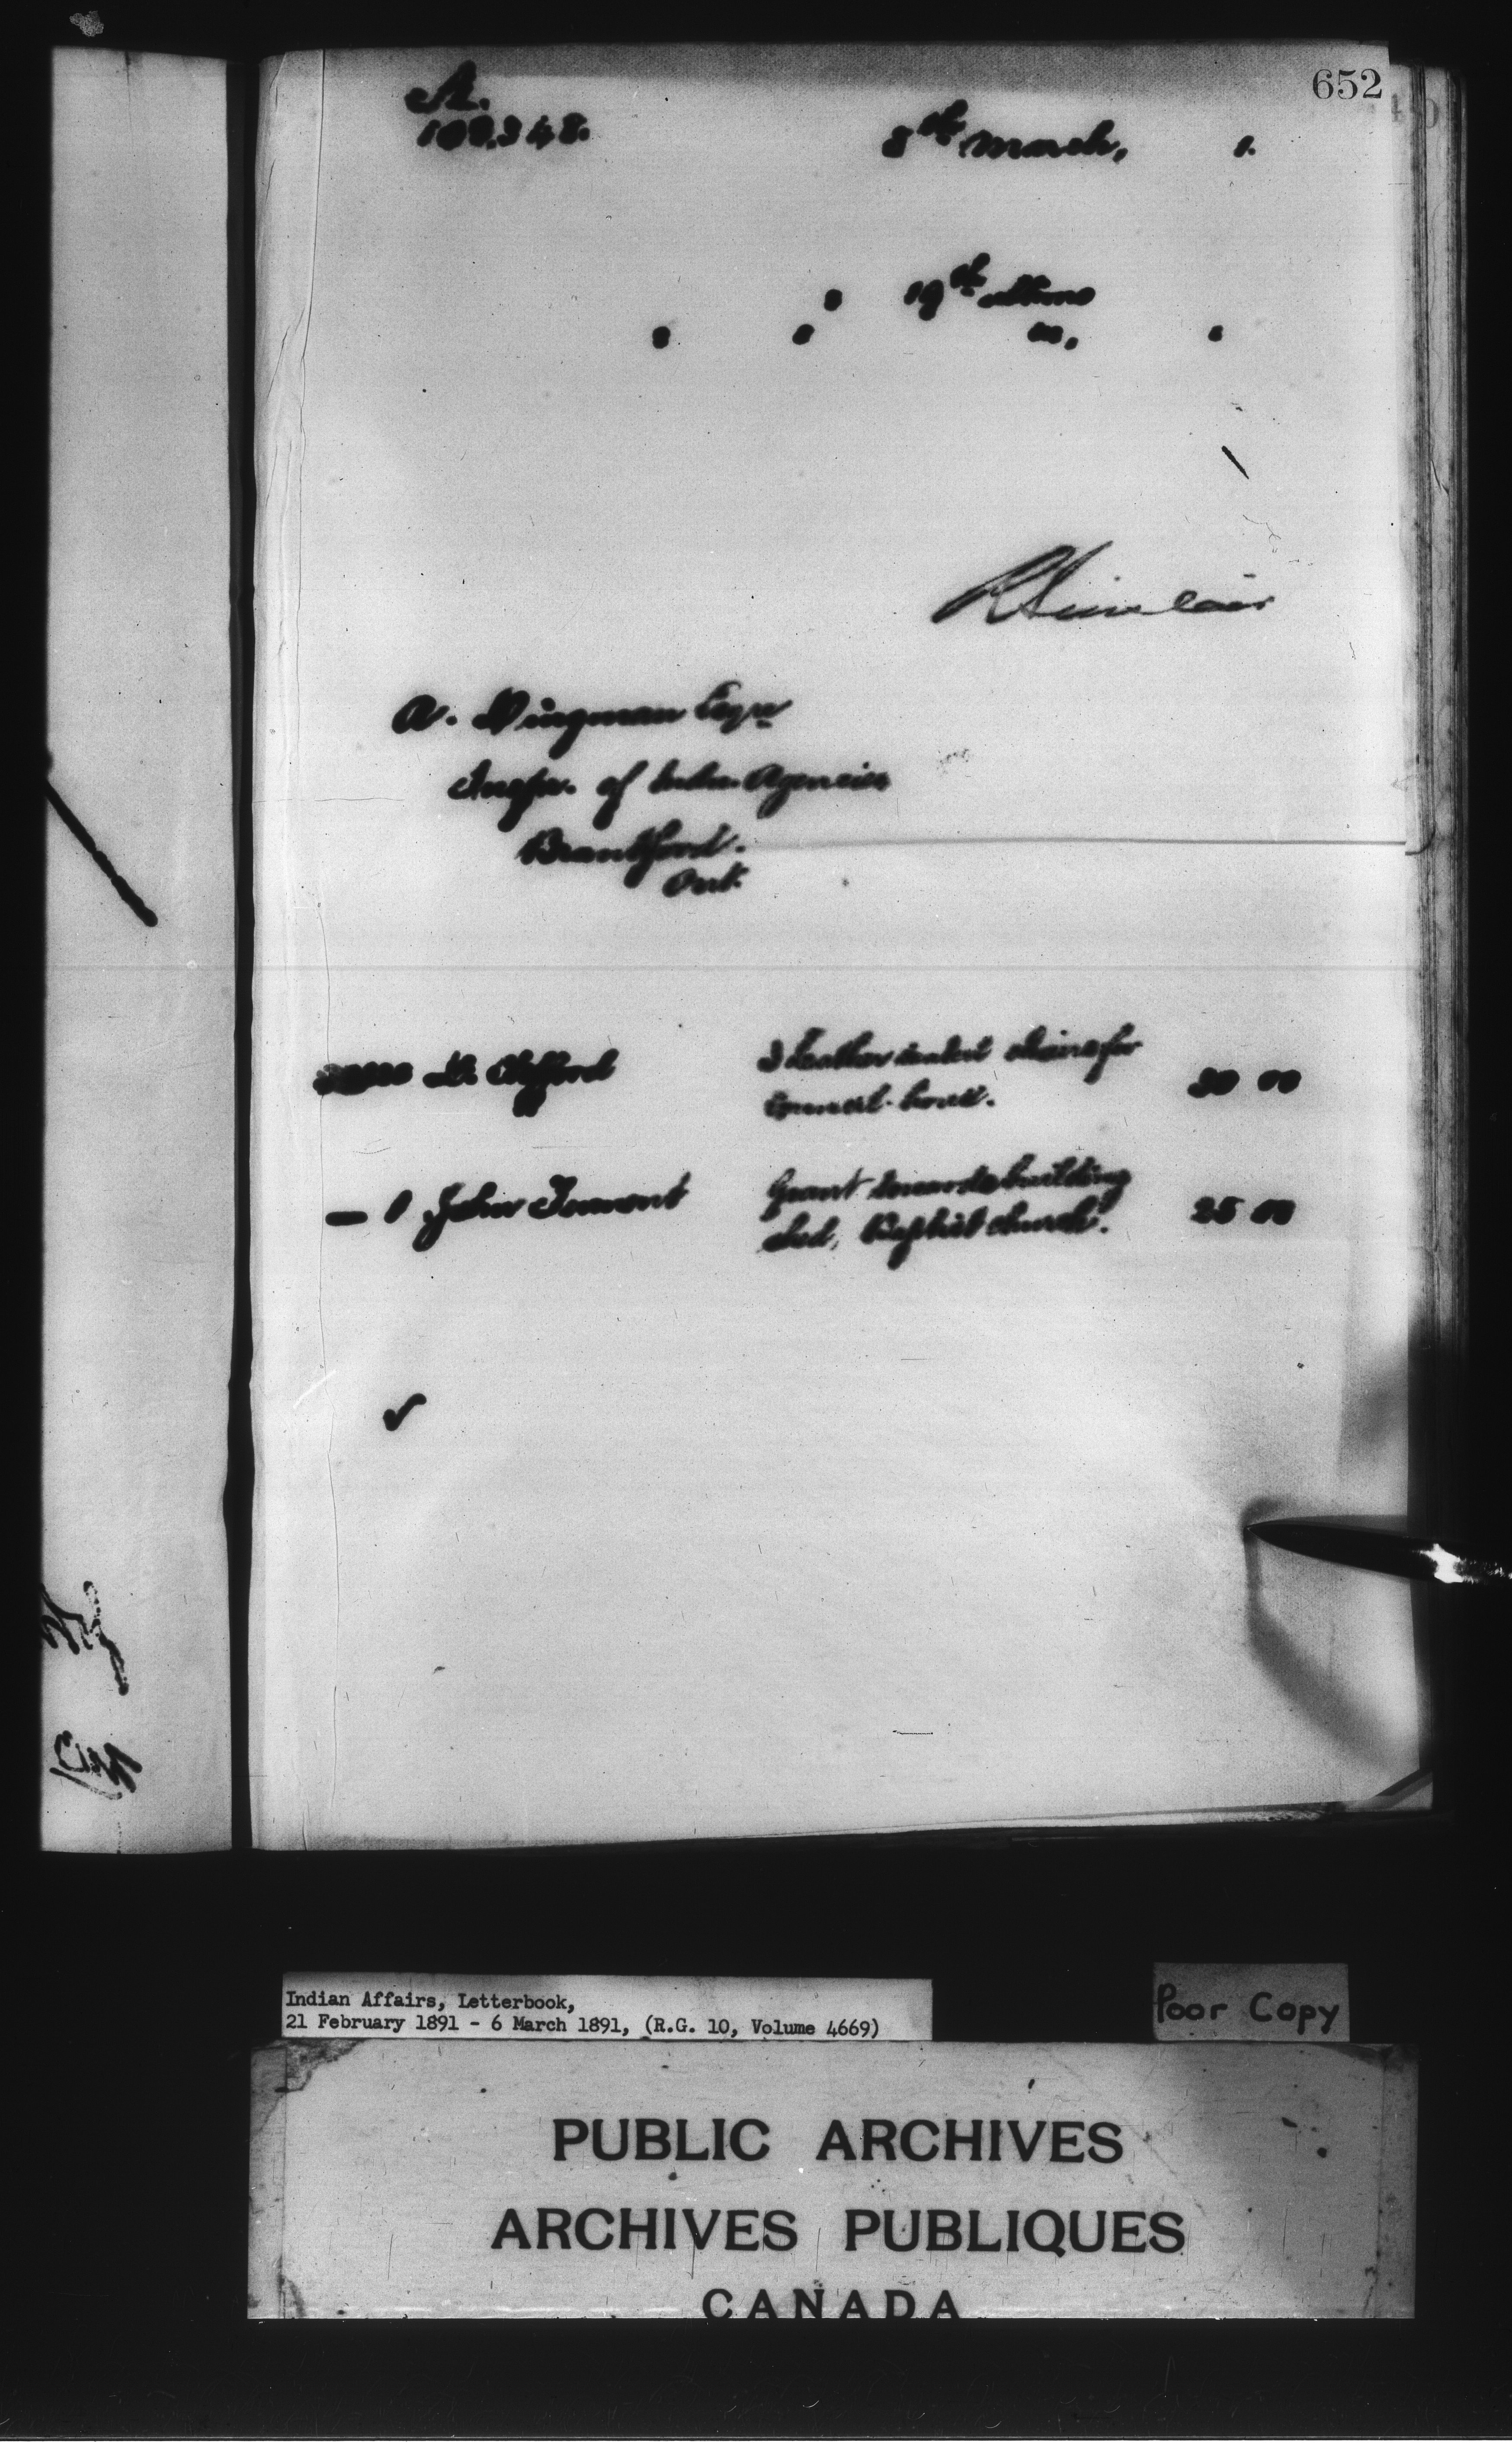 652
A.
5th March, 1.
19th ultimo
R Sinclair
A. Dingman Esqre
Inspr. of Indn. Agencies
Brantford.
Ont.
Clifford
3 Leather seated chairs for
30 00
Council-house.
1 John
Grant towards building
25 00
shed, Baptist church.
Indian Affairs, Letterbook,
21 February 1891 - 6 March 1891, (R.G. 10, Volume 4669)
Poor Copy
PUBLIC ARCHIVES
ARCHIVES PUBLIQUES
CANADA